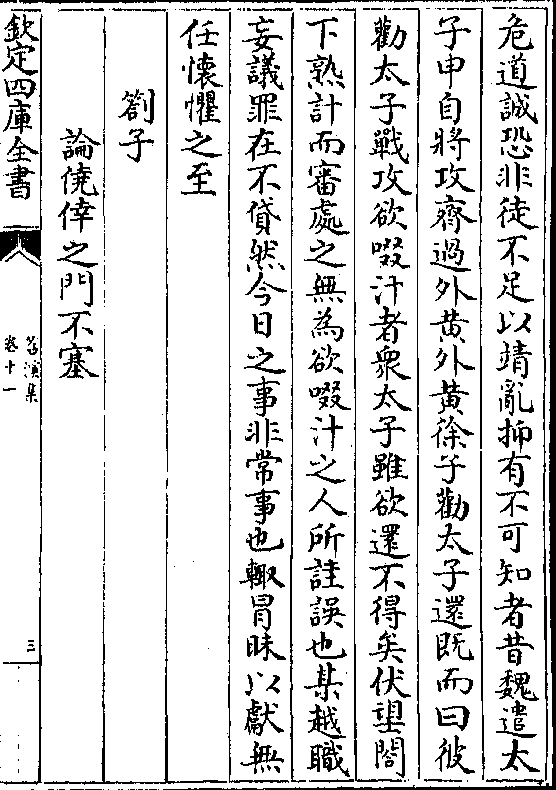 危道誠恐非徒不足以靖亂抑有不可知者昔魏遣太
子申自將攻齊過外黄外黄徐子勸太子還既而曰彼
勸太子戰攻欲啜汁者衆太子雖欲還不得矣伏望閤
下熟計而審處之無為欲啜汁之人所詿誤也某越職
妄議罪在不貸然今日之事非常事也輙冒昧以獻無
任懷懼之至
劄子
論僥倖之門不塞
欽定四庫全書
卷十一
三